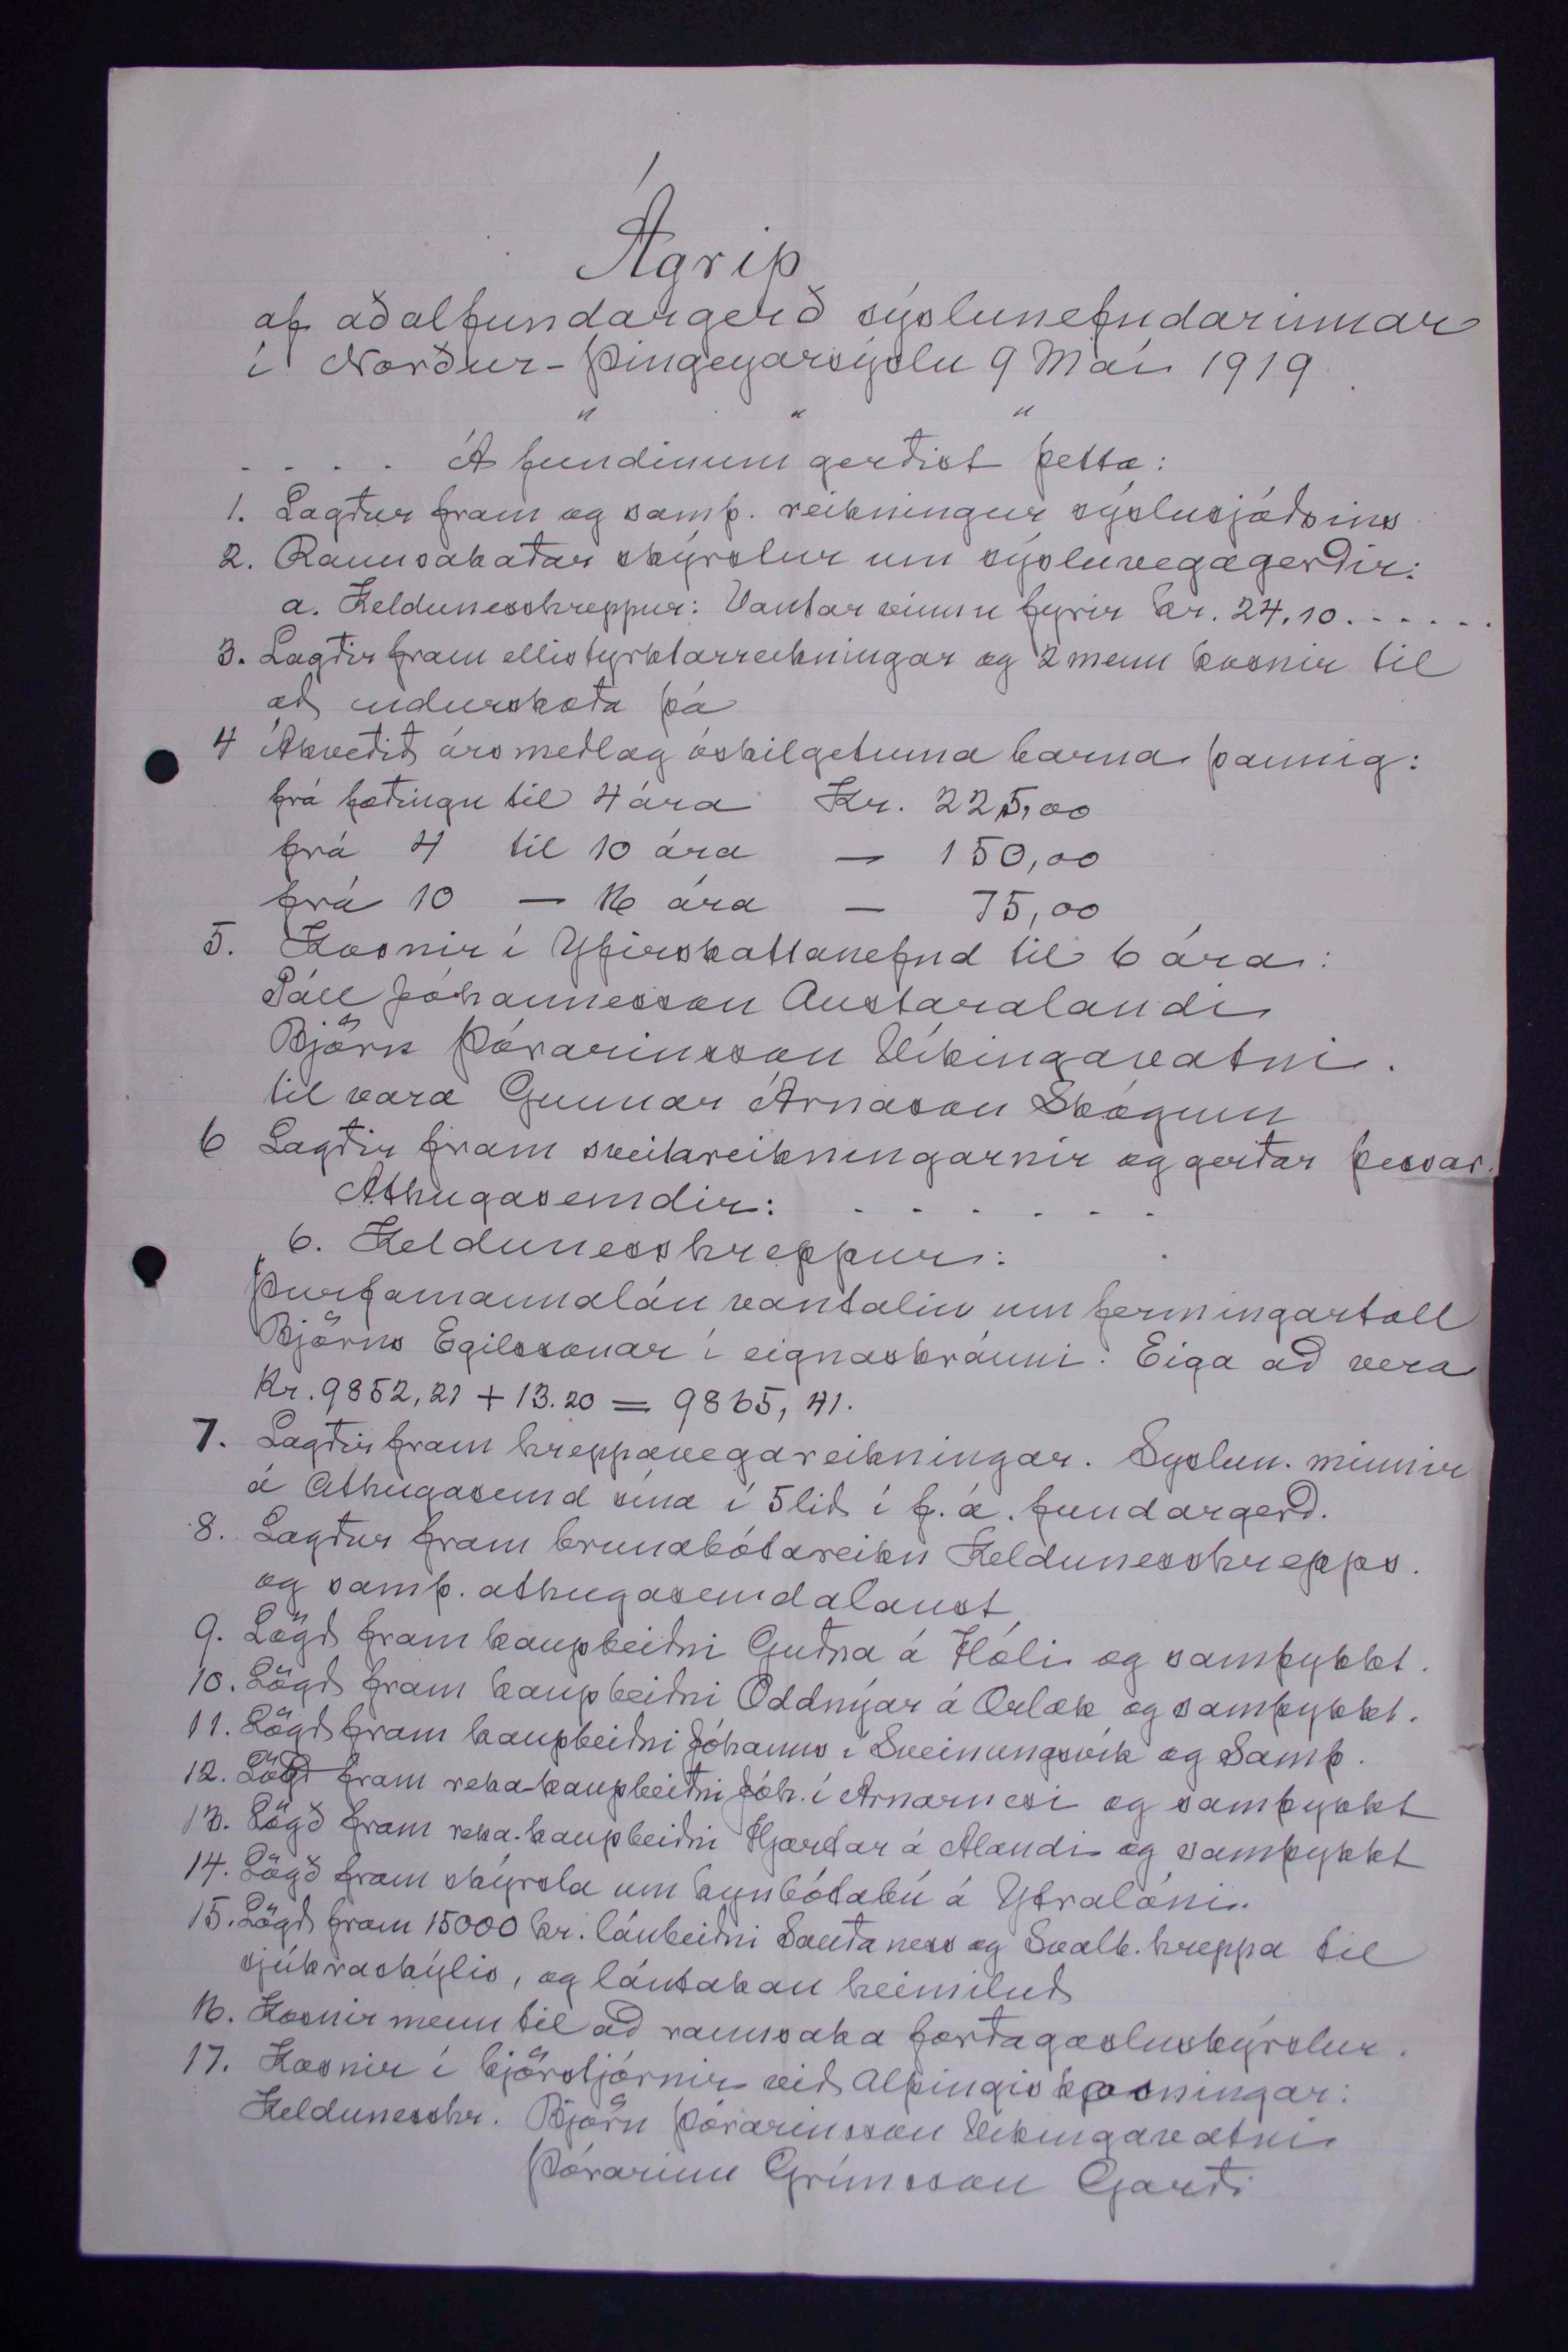 Ágrip
af aðalfundargerð sýslunefndarinnar
í Norður-Þingeyarsýslu 9 Maí 1919
" " "
. . . . Á fundinum gerðist þetta:
1. Lagður fram og samþ. reikningur sýslusjóðsins
2. Rannsakaðar skýrslur um sýsluvegagerðir:
a. Keldunesshreppur: Vantar vinnu fyrir kr. 24,10. . . . . .
3. Lagðir fram ellistyrktarreikningar og 2 menn kosnir til
að endurskoða þá
4 Ákveðið ársmeðlag óskilgetinna barna þannig:
frá fæðingu til 4 ára Kr. 225,00
frá 4 til 10 ára — 150,00
frá 10 — 16 ára — 75,00
5. Kosnir í Yfirskattanefnd til 6 ára:
Páll Jóhannesson Austaralandi
Björn Þórarinsson Víkingavatni.
til vara Gunnar Árnason Skógum
6 Lagðir fram sveitareikningarnir og gerðar þessar
Athugasemdir: . . . . . .
6. Keldunesshreppur:
Þurfamannalán vantalin um fermingartoll
Björns Egilssonar í eignaskránni. Eiga að vera
Kr. 9852,21 + 13.20 = 9865,41.
7. Lagðir fram hreppavegareikningar. Syslun. minnir
á Athugasemd sína í 5 lið í f. á. fundargerð.
8. Lagður fram brunabótareikn Keldunesshrepps.
og samþ. athugasemdalaust
9. Lögð fram kaupbeiðni Guðna á Hóli og samþykkt.
10. Lögð fram kaupbeiðni Oddnýar á Orlæk og samþykkt.
11. Lögð fram kaupbeiðni Jóhanns í Sveinungsvík og Samþ.
12. Lögð fram reka-kaupbeiðni Jóh. í Arnarnesi og samþykkt
13. Lögð fram reka-kaupbeiðni Hjartar á Alandi og samþykkt
14. Lögð fram skýrsla um kynbótabú á Ytralóni.
15. Lögð fram 15000 kr. lánbeiðni Sauðaness og Svalb. hreppa til
sjúkraskýlis, og lántakan heimiluð
16. Kosnir menn til að rannsaka forðagæsluskýrslur.
17. Kosnir í kjörstjórnir við Alþingiskosningar:
Keldunesshr. Björn Þórarinsson Víkingavatni
Þórarinn Grímsson Garði